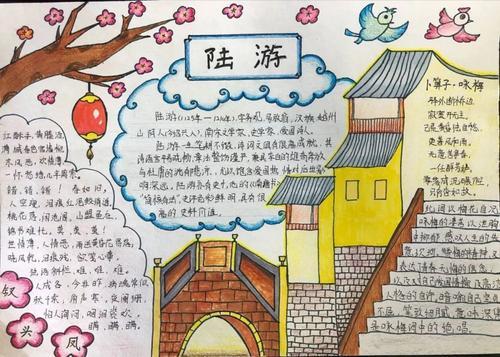 陆游
陆游(1125年—1210年),字务观,号放翁,汉族,越州
山阴人(今绍兴人),南宋文学家、史学家、爱国诗人。
陆游一生笔耕不辍,诗词文具有很高成就,其
诗语言平易晓畅,章法整饬谨严,兼具李白的雄奇奔放
与杜甫的沉郁悲凉,尤以饱含爱国热情对后世影
响深远。陆游亦有史才,他的《南唐书》
史评色彩鲜明,具有很
高的史料价值。
卜算子·咏梅
驿外断桥边,
寂寞开无主。
已是黄昏独自愁,
更著风和雨。
无意苦争春,
一任群芳妒。
零落成泥碾作尘,
只有香如故。
红酥手,黄縢酒,
满城春色宫墙柳。
东风恶,欢情薄。
一怀愁绪,几年离索。
错、错、错!春如旧,
人空瘦,泪痕红浥鲛绡透。
桃花落,闲池阁。山盟虽在,
锦书难托。莫、莫、莫!
世情薄,人情恶,雨送黄昏花易落。
晓风干,泪痕残。欲笺心事,
独语斜阑。难,难,难!
人成各,今非昨,病魂常似
秋千索。角声寒,夜阑珊。
怕人寻问,咽泪装欢。
瞒,瞒,瞒!
钗
头
凤
此词以梅花自况,
咏梅的凄苦以泄胸